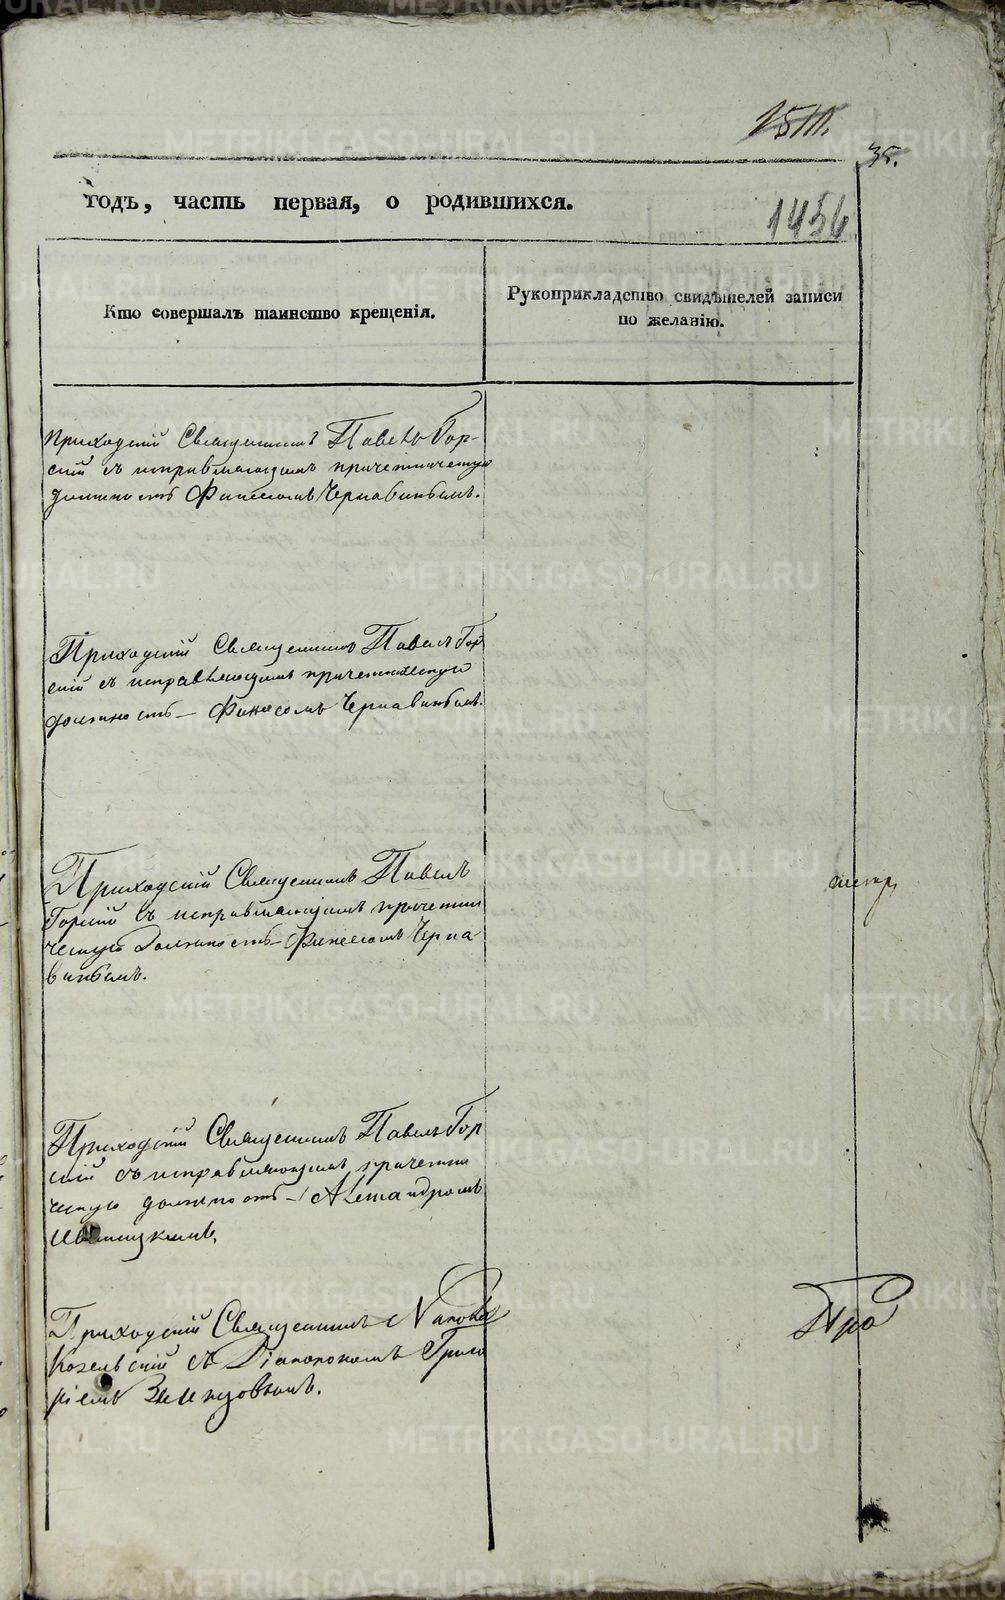 годъ, часть первая, о родившихся.
1456
Кто совершалъ таинство крещенія.
Рукоприкладство свидѣтелей записи
по желанію.
Приходскій Священникъ Павелъ Гор-
скій съ исправляющимъ причетническую
должность Финеесомъ Чернавинымъ.
Приходскій Священникъ Павелъ Гор
скій съ исправляющимъ причетническую
должность – Финеесомъ Чернавинымъ.
Приходскій Священникъ Павелъ
Горскій съ исправляющимъ причетни
ческую должность – Финеесомъ Черна
винымъ.
Приходскій Священникъ Павелъ Гор
скій съ исправляющимъ причетни
ческую должность – Александромъ
Приходскій Священникъ
Козельскій съ Діакономъ Григо
ріемъ
METRIKI.GASO-URAL.RU